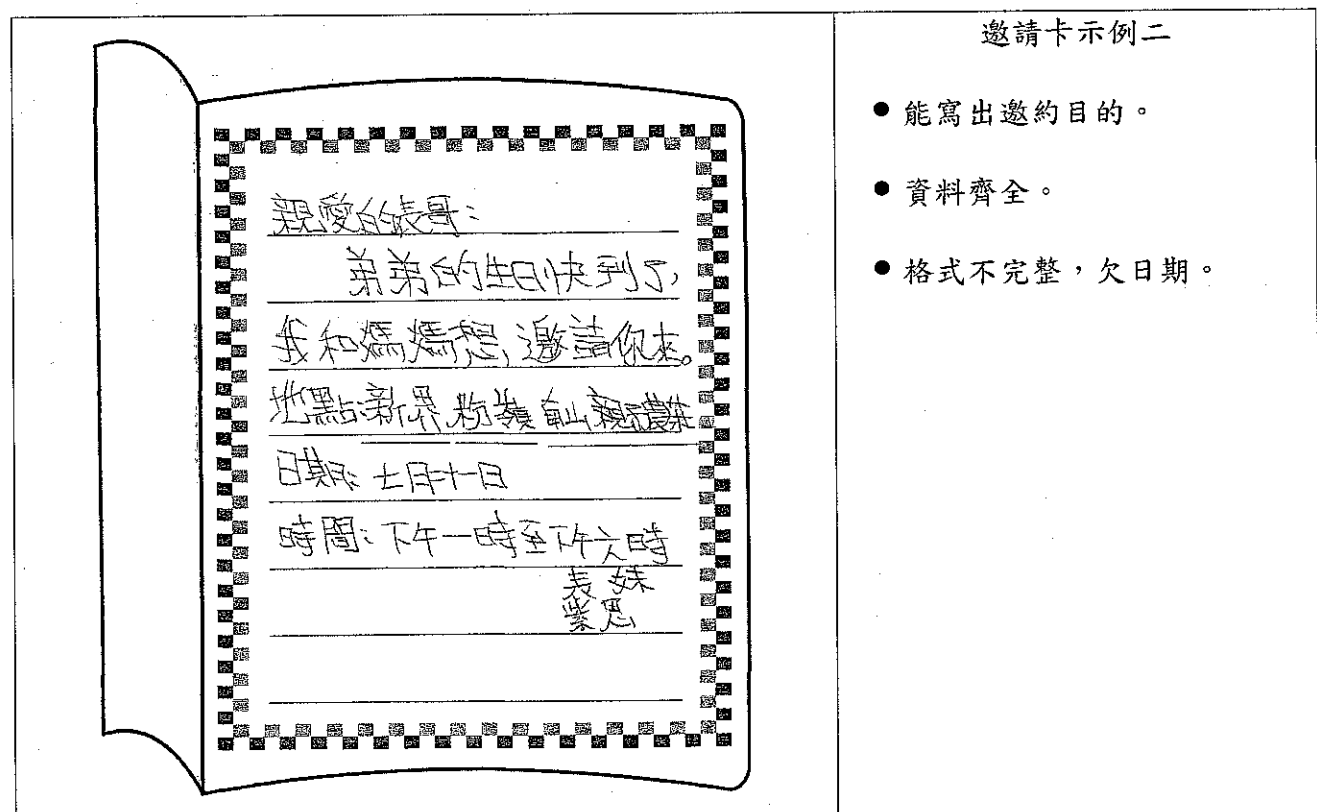 親愛的表哥：
弟弟的生日快到了，
我和媽媽想邀請你來。
地點：新界粉嶺 親子農莊
日期：七月十一日
時間：下午一時至下午六時
表妹
紫思
邀請卡示例二
● 能寫出邀約目的。
● 資料齊全。
● 格式不完整，欠日期。